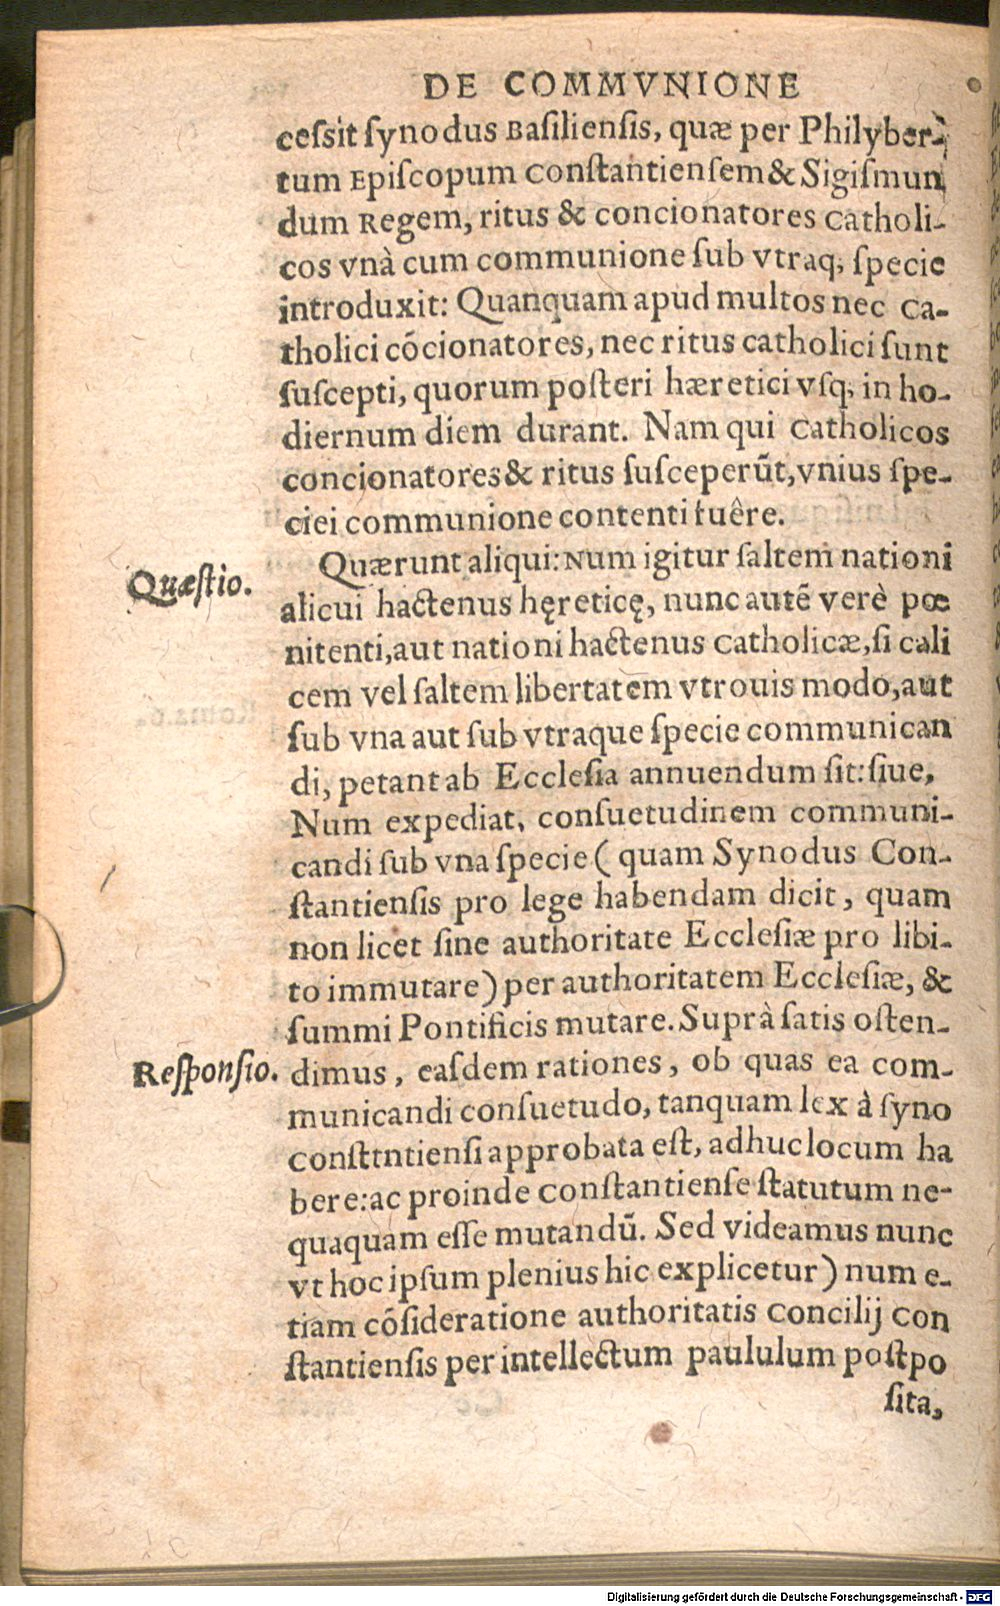 DE COMMVNIONE
ceſsit ſynodus Baſilienſis, quæ per Philyber-
tum Epiſcopum Conſtantienſem & Sigiſmun
dum Regem, ritus & concionatores Catholi-
cos vnà cum communione ſub vtraq; ſpecie
introduxit: Quanquam apud multos nec Ca-
tholici cõcionatores, nec ritus catholici ſunt
ſuſcepti, quorum poſteri hæretici vſq; in ho-
diernum diem durant. Nam qui Catholicos
concionatores & ritus ſuſceperũt, vnius ſpe-
ciei communione contenti fuêre.
Quærunt aliqui: Num igitur ſaltem nationi
Quæſtio.
alicui hactenus hęreticę, nunc autẽ verè pœ
nitenti, aut nationi hactenus Catholicæ, ſi cali
cem vel ſaltem libertatem vtrouis modo, aut
ſub vna aut ſub vtraque ſpecie communican
di, petant ab Eccleſia annuendum ſit: ſiue,
Num expediat, conſuetudinem communi-
candi ſub vna ſpecie ( quam Synodus Con-
ſtantienſis pro lege habendam dicit, quam
non licet ſine authoritate Eccleſiæ pro libi-
to immutare ) per authoritatem Eccleſiæ, &
ſummi Pontificis mutare. Suprà ſatis oſten-
Reſponſio.
dimus, eaſdem rationes, ob quas ea com-
municandi conſuetudo, tanquam lex à ſyno
conſttntienſi approbata eſt, adhuc locum ha
bere: ac proinde Conſtantienſe ſtatutum ne-
quaquam eſſe mutandũ. Sed videamus nunc
vt hoc ipſum plenius hic explicetur ) num e-
tiam cõſideratione authoritatis Concilij Con
ſtantienſis per intellectum paululum poſtpo
ſita,
Digitalisierung gefördert durch die Deutsche Forschungsgemeinschaft - DFG